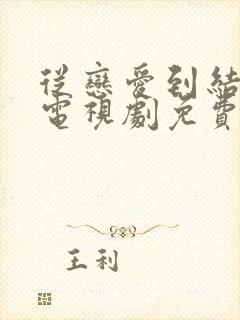 從戀愛到結
電視劇免費
王利